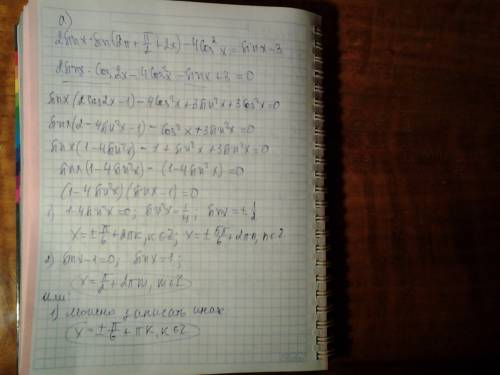 а)
2sinx·sin(2π + π/2 + 2x) - 4cos²x = sinx - 3
2sinx · cos2x - 4cos²x - sinx + 3 = 0
sinx(2cos2x - 1) - 4cos²x + 3sin²x + 3cos²x = 0
sinx(2 - 4sin²x - 1) - cos²x + 3sin²x = 0
sinx(1 - 4sin²x) - 1 + sin²x + 3sin²x = 0
sinx(1 - 4sin²x) - (1 - 4sin²x) = 0
(1 - 4sin²x)(sinx - 1) = 0
1) 1 - 4sin²x = 0; sin²x = 1/4; sinx = ± 1/2
x = ± π/6 + 2πk, k∈Z; x = ± 5π/6 + 2πn, n∈Z
2) sinx - 1 = 0; sinx = 1;
x = π/2 + 2πm, m∈Z
или:
1) можно записать иначе
x = ± π/6 + πk, k∈Z